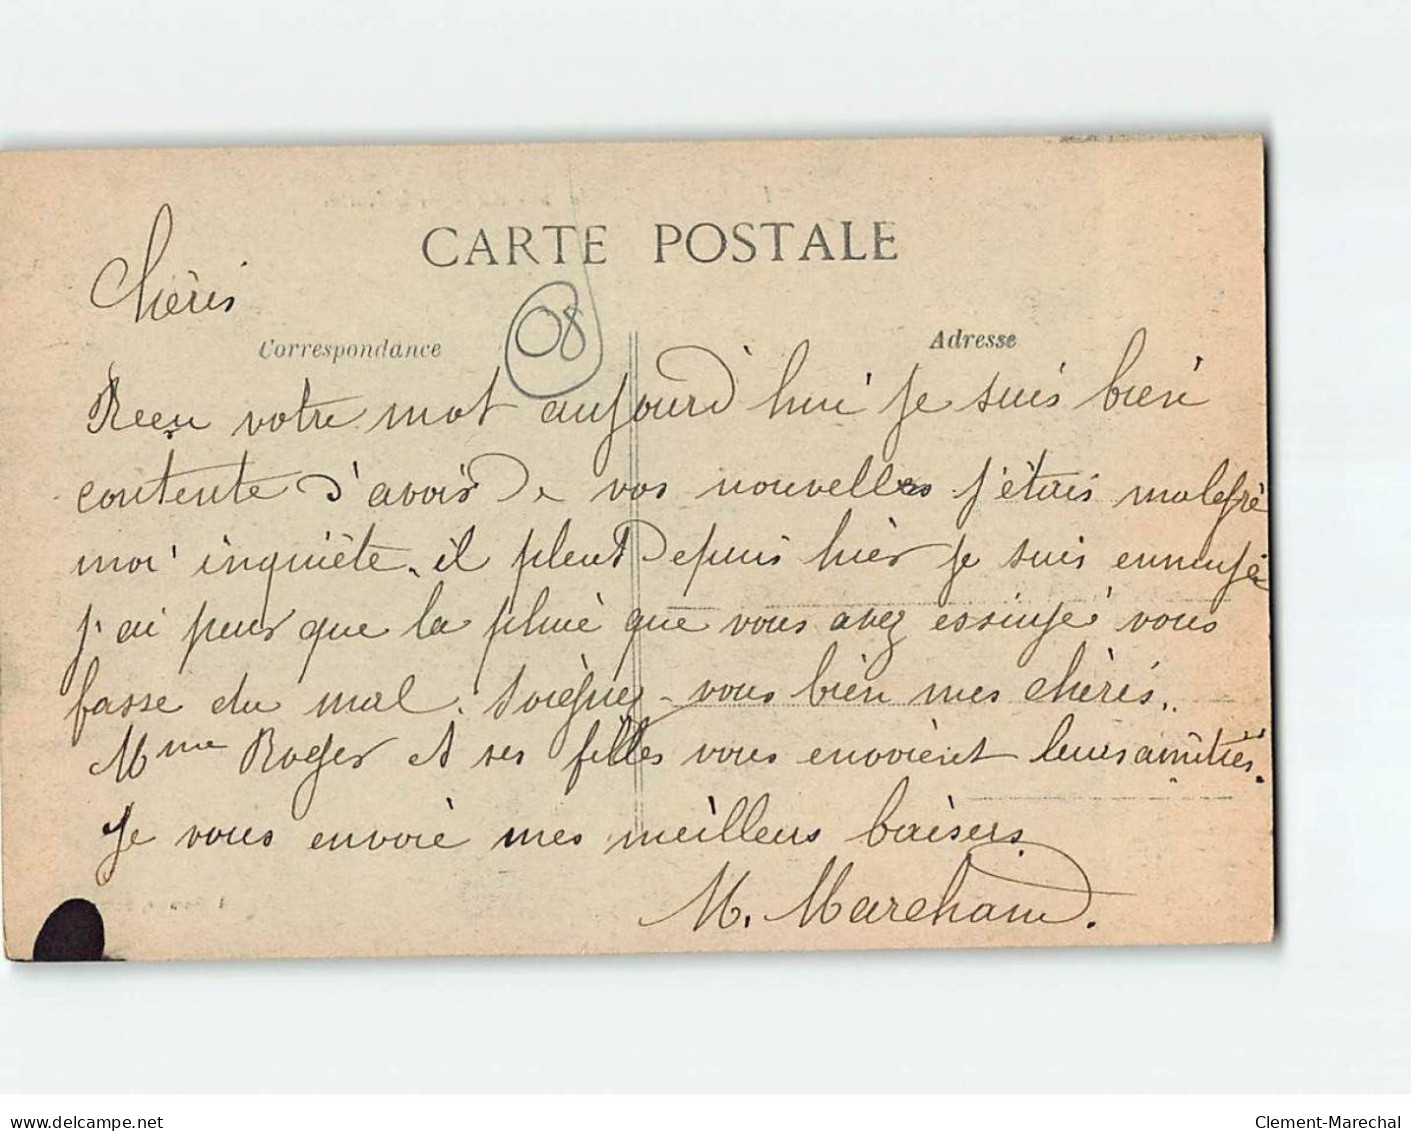 CARTE POSTALE
Chèris
Correspondance
08
Adresse
Reçu votre mot aujourd'hui je suis bien
contente d'avoir de vos nouvelles j'étais malgrè
moi inquiète. il pleut depuis hier je suis ennuyé
j'ai peur que la pluie que vous avez essuyé vous
fasse du mal. Soignez-vous bien mes chèris.
Mme Roger et ses filles vous envoient leurs amitiés.
Je vous envoie mes meilleurs baisers.
M. Marchand.
www.delcampe.net
Clement-Marechal